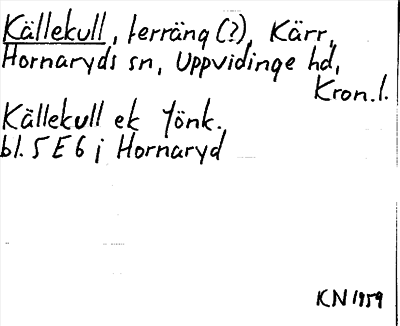 Källekull, terräng (?), Kärr,
Hornaryds sn, Uppvidinge hd,
Kron.l.
Källekull ek Jönk.
bl. 5 E 6 j Hornaryd
KN 1959